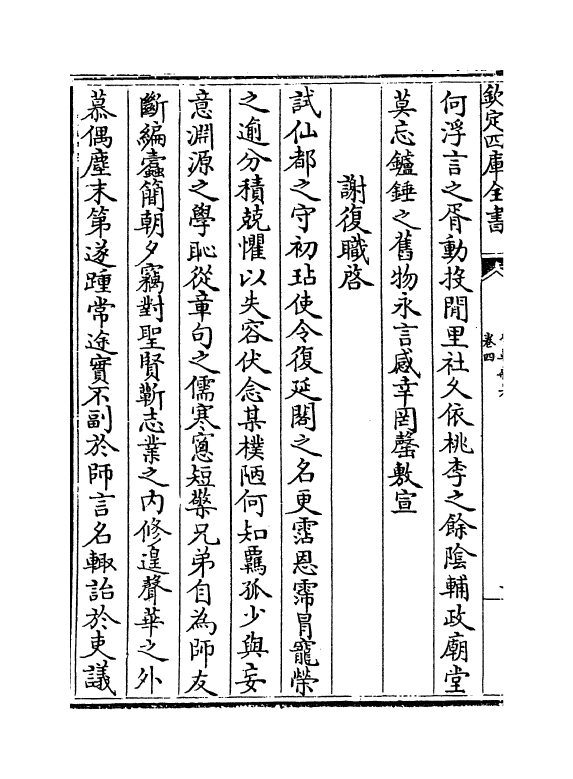 欽定四庫全書
卷四
何浮言之胥動投閒里社久依桃李之餘陰輔政廟堂
莫忘鑪錘之舊物永言感幸罔罄敷宣
謝復職啓
試仙都之守初玷使令復延閣之名更霑恩霈冒寵榮
之逾分積兢懼以失容伏念某樸陋何知羈孤少與妄
意淵源之學恥從章句之儒寒窻短檠兄弟自為師友
斷編蠹簡朝夕竊對聖賢蘄志業之内修遑聲華之外
慕偶塵末第遂踵常途實不副於師言名輙詒於吏議